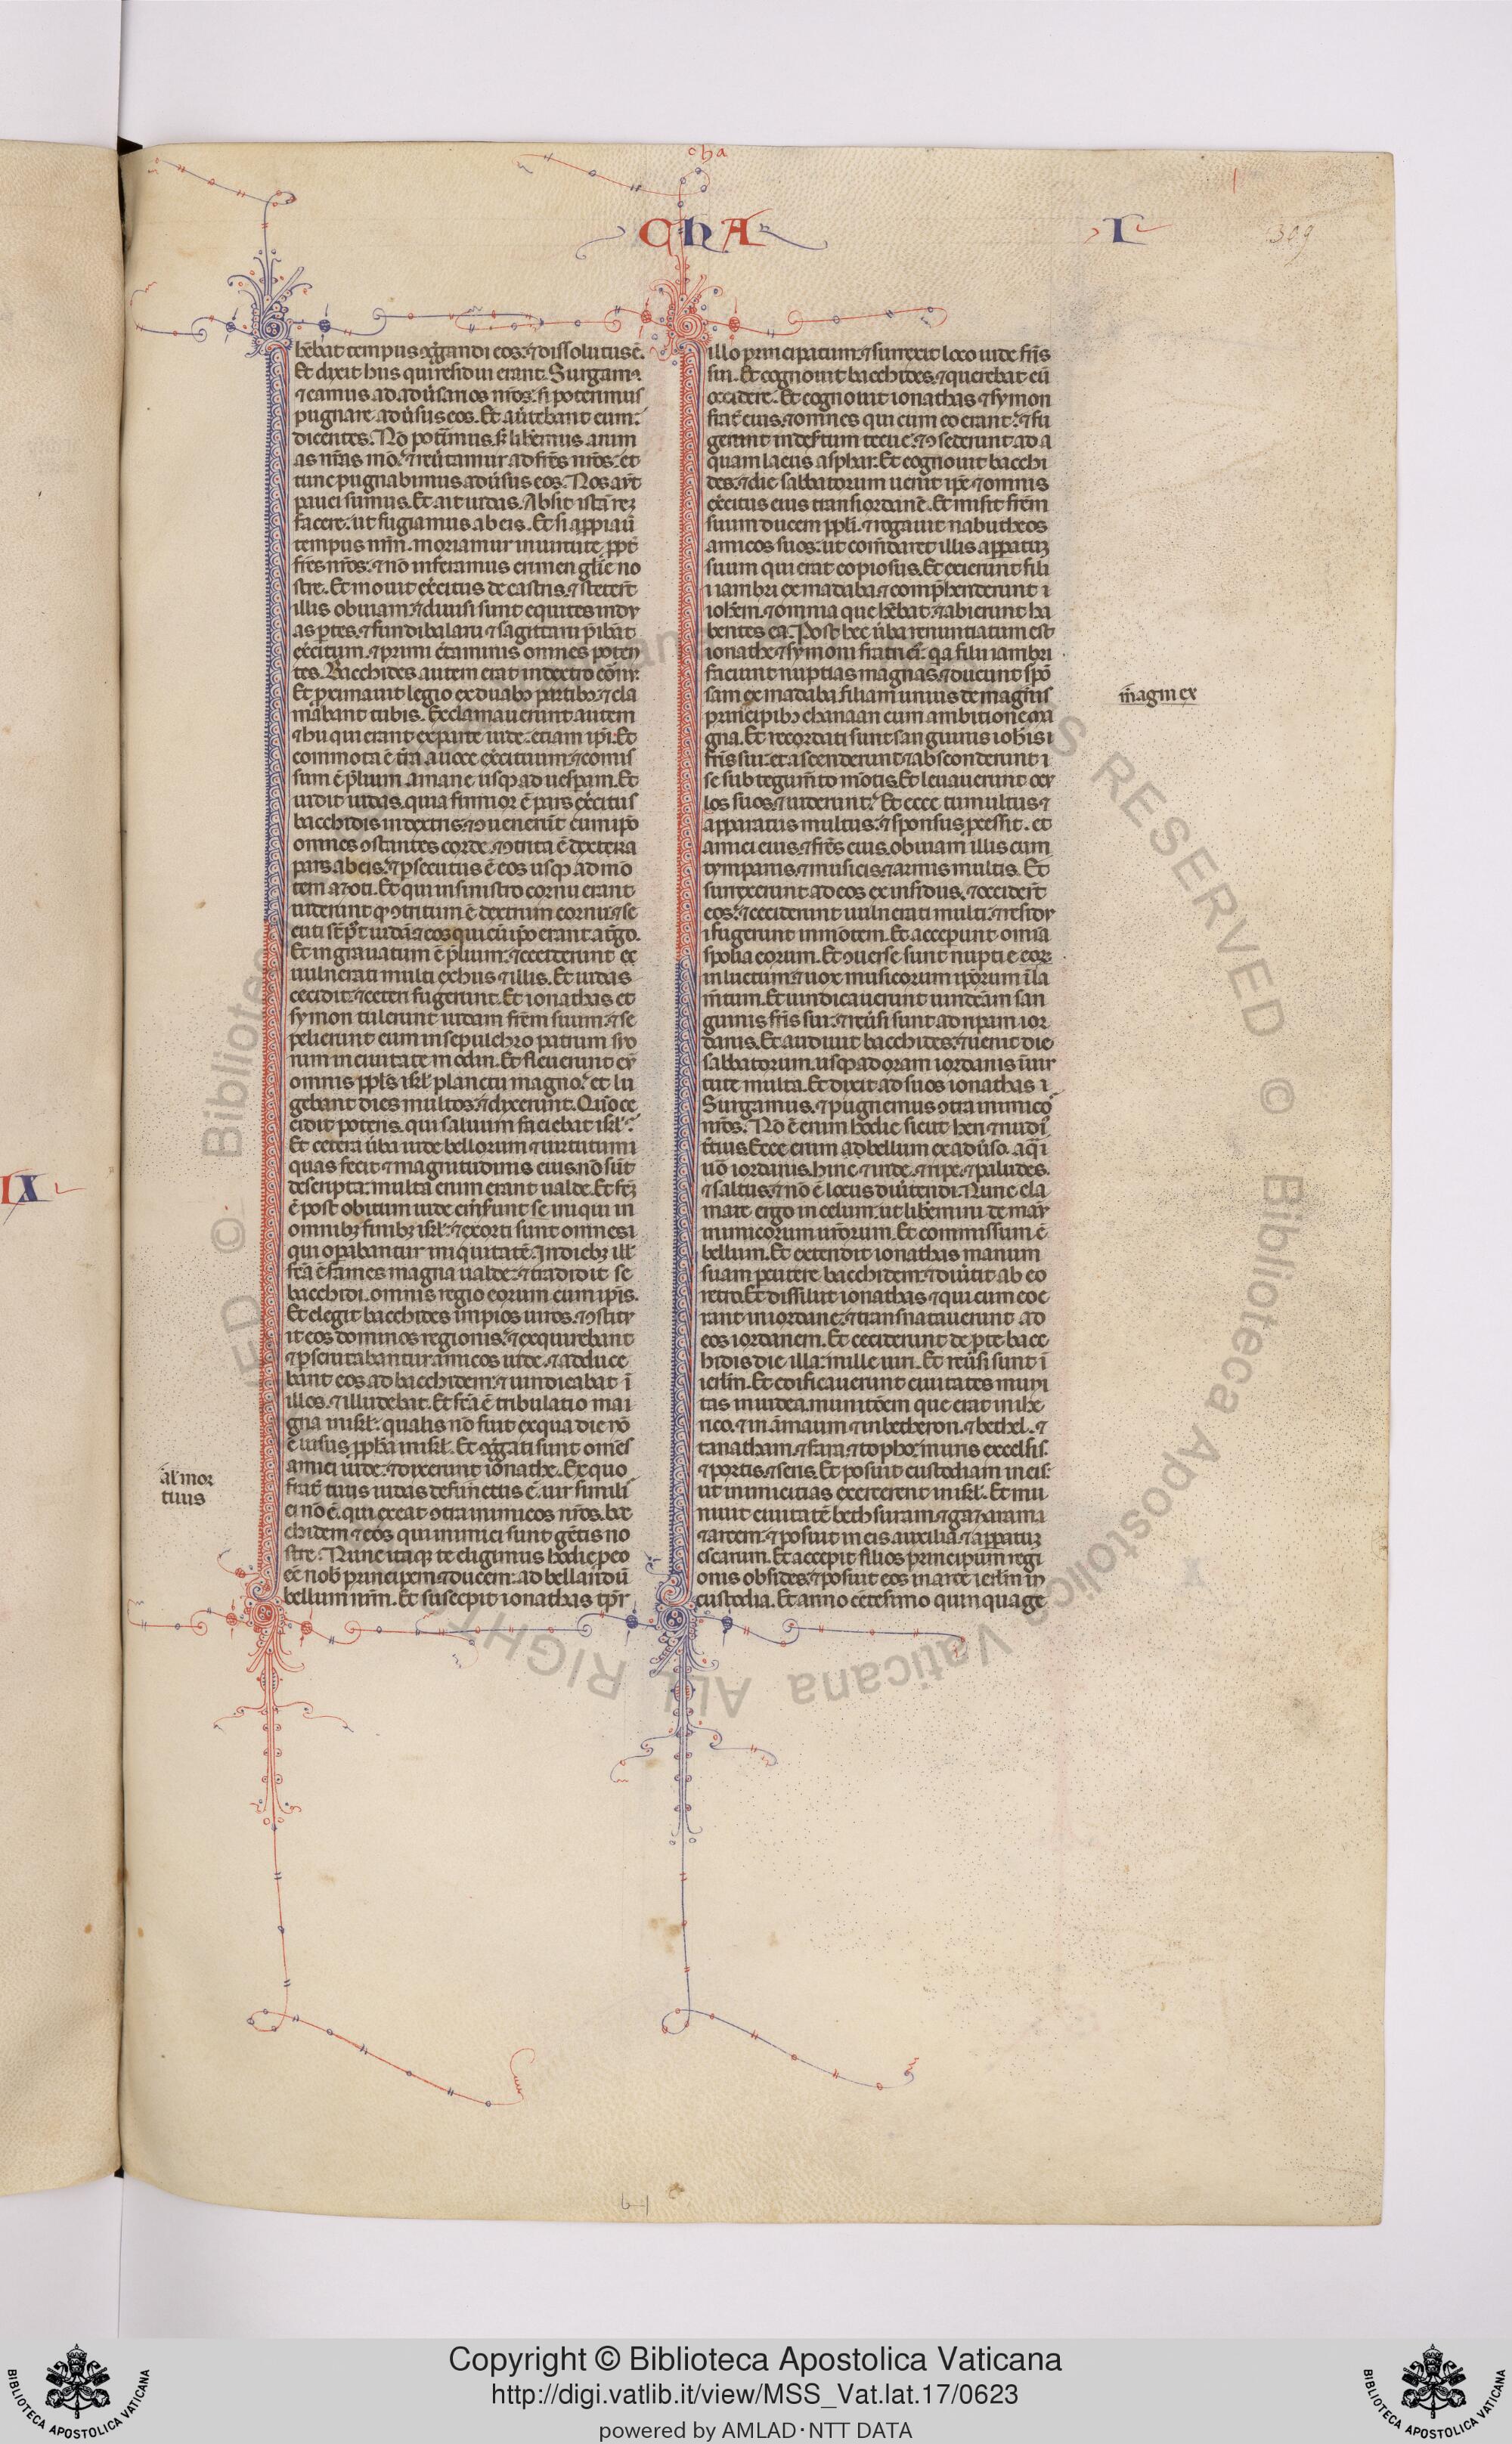 cha
CHA
I
309
IX
hēbat tempus ꝯg̃gandi eos: ⁊ dissolutus ē.
Et dixit hiis qui residui erant. Surgamꝰ
⁊ eamus ad adūsarios nr̄os: si poterimus
pugnare adūsus eos. Et aūtebant eum:
dicentes. Nō potīmus. sꝫ libēmus anim
as nr̄as mō: ⁊ reūtamur ad fr̄es nr̄os: et
tunc pugnabimus adūsus eos. Nos aut̄
pauci sumus. Et ait iudas. Absit istā reꝫ
facere: ut fugiamus ab eis. Et si app̱iaū
tempus nr̄m. moriamur in uirtute ꝓpt̄
fr̄es nr̄os: ⁊ nō inferamus crimen gl̄ie no
stre. Et mouit ex̄citus de castris. ⁊ steterūt
illis obuiam: ⁊ diuisi sunt equites in du
as ꝑtes. ⁊ fundibalarii ⁊ sagittarii p̄ibāt
ex̄citum. ⁊ primi c̄taminis omnes poten
tes. Bacchides autem erat in dextro cōru:
Et proximauit legio ex duabꝫ partibꝫ: ⁊ cla
mabant tubis. Exclamauerunt autem
⁊ hii qui erant ex parte iude: etiam ip̄i. Et
commota ē t̄ra a uoce ex̄cituum: ⁊ comis
sum ē p̄lium. a mane usqꝫ ad uesꝑam. Et
uidit iudas. quia firmior ē pars ex̄citus
bacchidis in dextris: ⁊ ꝯuenerūt cum ip̄o
omnes ꝯstantes corde. ⁊ ꝯtrita ē dextera
pars ab eis: ⁊ ꝑsecutus ē eos usqꝫ ad mō
tem azoti. Et qui in sinistro cornu erant
uiderunt ꝙ ꝯtritum ē dextrum cornu: ⁊ se
cuti st̄ p̄t iudā ⁊ eos qui cū ip̄o erant a t̄go.
Et ingrauatum ē p̄lium: ⁊ ceciderunt
uulnerati multi ex hiis ⁊ illis. Et iudas
cecidit: ⁊ ceteri fugerunt. Et ionathas et
symon tulerunt iudam fr̄em suum: ⁊ se
pelierunt eum in sepulchro patrum suo
rum in ciuitate modin. Et fleuerunt eū
omnis ppl̄s isrl̄ planctu magno: et lu
gebant dies multos: ⁊ dixerunt. Quōce
cidit potens. qui saluum faciebat isrl̄:
Et cetera ūba iude bellorum ⁊ uirtutum
quas fecit ⁊ magnitudinis eius: nō sūt
descripta: multa enim erant ualde. Et fcm̄
ē post obitum iude em̄serunt se iniqui in
omnibꝫ finibꝫ isrl̄: ⁊ exorti sunt omnes
qui oꝑabantur iniquitatē. In diebꝫ ill̄
fc̄a ē fames magna ualde: ⁊ tradidit se
bacchidi. omnis regio eorum cum ip̄is.
Et elegit bacchides impios uiros: ⁊ ꝯstitu
it eos dominos regionis: ⁊ exquirebant
⁊ ꝑscrutabantur amicos iude. ⁊ adduce
bant eos ad bacchidem: ⁊ uindicabat ī
illos. ⁊ illudebat. Et fc̄a ē tribulatio ma
gna in isrl̄: qualis nō fuit ex qua die nō
ē uisus ꝓph̄a in isrl̄. Et ꝯg̃gati sunt om̄es
amici iude: ⁊ dixerunt ionathe. Ex quo
frat̄ tuus iudas defunctus ē: uir simili
ei nō ē. qui exeat ꝯtra inimicos nr̄os. bac
chidem ⁊ eos qui inimici sunt gētis no
stre. Nunc itaqꝫ te eligimus hodie ꝓ eo
eē nob̄ principem ⁊ ducem: ad bellandū
bellum nr̄m. Et suscepit ionathas tp̄r̄
al̄ mor
tuus
illo principatum: ⁊ surrexit loco iude fr̄is
sui. Et cognouit bacchides. ⁊ querebat eū
occidere. Et cognouit ionathas ⁊ symon
frat̄ eius. ⁊ omnes qui cum eo erant: ⁊ fu
gerunt in desertum tecue: ⁊ ꝯsederunt ad a
quam lacus asphar. Et cognouit bacchi
des: ⁊ die sabbatorum uenit ip̄e ⁊ omnis
ex̄citus eius trans iordanē. Et misit fr̄em
suum ducem ppl̄i. ⁊ rogauit nabutheos
amicos suos: ut com̄daret illis apparatū
suum qui erat copiosus. Et exierunt fili
i iambri ex madaba ⁊ comp̄henderunt i
ioh̄em. ⁊ omnia que hēbat: ⁊ abierunt ha
bentes ea. Post hec ūba renuntiatum est
ionathe ⁊ symoni fratri ei: qa filii iambri
faciunt nuptias magnas. ⁊ ducunt spō
sam ex madaba filiam unius de magnis
principibꝫ chanaan cum ambitione ma
gna. Et recordati sunt sanguinis ioh̄is
fr̄is sui: et ascenderunt: ⁊ absconderunt
se sub tegum̄to mōtis. Et leuauerunt ocu
los suos: ⁊ uiderunt: Et ecce tumultus ⁊
apparatus multus: ⁊ sponsus ꝓcessit. et
amici eius ⁊ fr̄es eius. obuiam illis cum
tympanis. ⁊ musicis: ⁊ armis multis. Et
surrexerunt ad eos ex insidiis. ⁊ occiderūt
eos: ⁊ ceciderunt uulnerati multi: ⁊ residu
i fugerunt in mōtem. Et acceꝑunt omīa
spolia eorum. Et ꝯuerse sunt nuptie eoꝝ
in luctum: ⁊ uox musicorum ip̄orum ī la
m̄tum. Et uindicauerunt uindc̄am san
guinis fr̄is sui: ⁊ reūsi sunt ad ripam ior
danis. Et audiuit bacchides: ⁊ uenit die
sabbatorum. usqꝫ ad oram iordanis ī uir
tute multa. Et dixit ad suos ionathas
Surgamus. ⁊ pugnemus ꝯtra inimico
nr̄os. Nō ē enim hodie sicut heri ⁊ nudi
t̄tius. Ecce enim ad bellum ex adūso. aq̄
uō iordanis. hinc ⁊ inde. ⁊ ripe. ⁊ paludes.
⁊ saltus: ⁊ nō ē locus diūtendi. Nunc cla
mate ergo in celum: ut libēmini de manu
inimicorum ur̄orum. Et commissum ē
bellum. Et extendit ionathas manum
suam ꝑcutere bacchidem: ⁊ diūtit ab eo
retro. Et dissiliit ionathas ⁊ qui cum eo e
rant in iordane: ⁊ transnatauerunt ad
eos iordanem. Et ceciderunt de ꝑte bacc
hidis die illa: mille uiri. Et reūsi sunt ī
ierl̄m. Et edificauerunt ciuitates muni
tas in iudea. munitōem que erat in ihe
rico. ⁊ in āmaum ⁊ in bethoron. ⁊ bethel. ⁊
tanatham. ⁊ fara. ⁊ topho: muris excelsis.
⁊ portis. ⁊ seris. Et posuit custodiam in eis:
ut inimicitias exercerent in isrl̄. Et mu
niuit ciuitatē bethsuram. ⁊ gazarama
⁊ arcem: ⁊ posuit in eis auxilia. ⁊ apparatū
escarum. Et accepit filios principum regi
onis obsides: ⁊ posuit eos in arce ierl̄m in
custodia. Et anno cētesimo quinquage
m̄agm ex
Copyright © Biblioteca Apostolica Vaticana
http://digi.vatlib.it/view/MSS_Vat.lat.17/0623
powered by AMLAD·NTT DATA
BIBLIOTECA APOSTOLICA VATICANA
BIBLIOTECA APOSTOLICA VATICANA